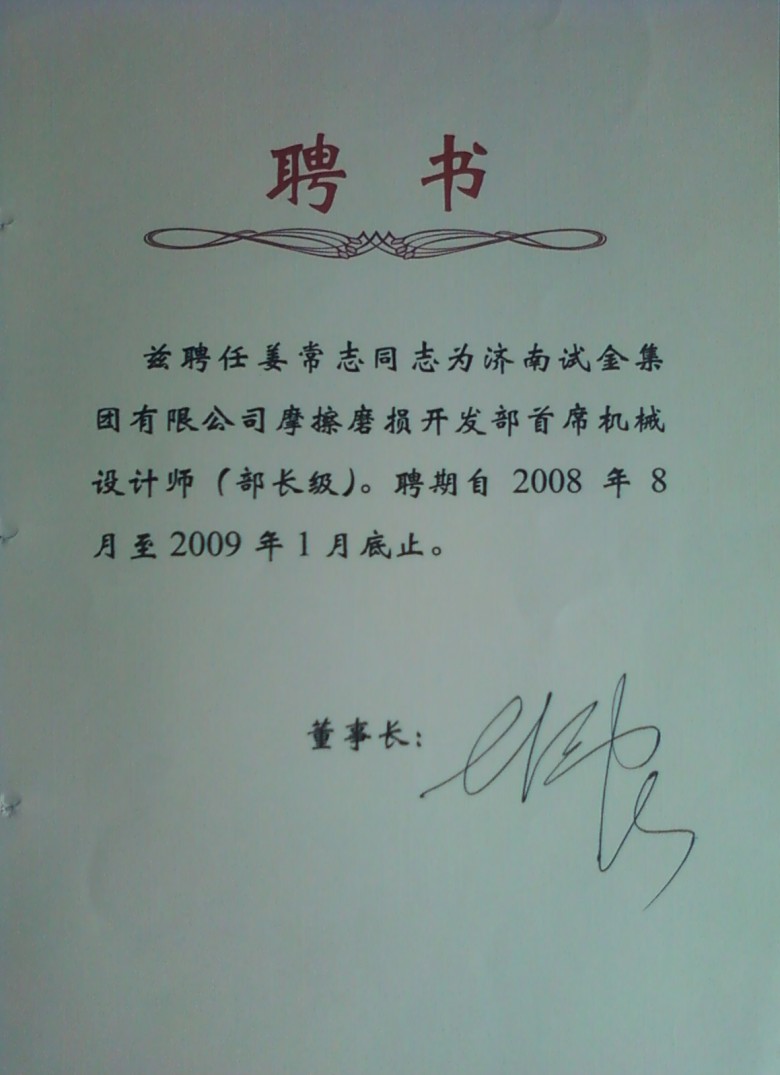 聘 书
兹聘任姜常志同志为济南试金集
团有限公司摩擦磨损开发部首席机械
设计师（部长级）。聘期自 2008 年 8
月至 2009 年 1 月底止。
董事长：